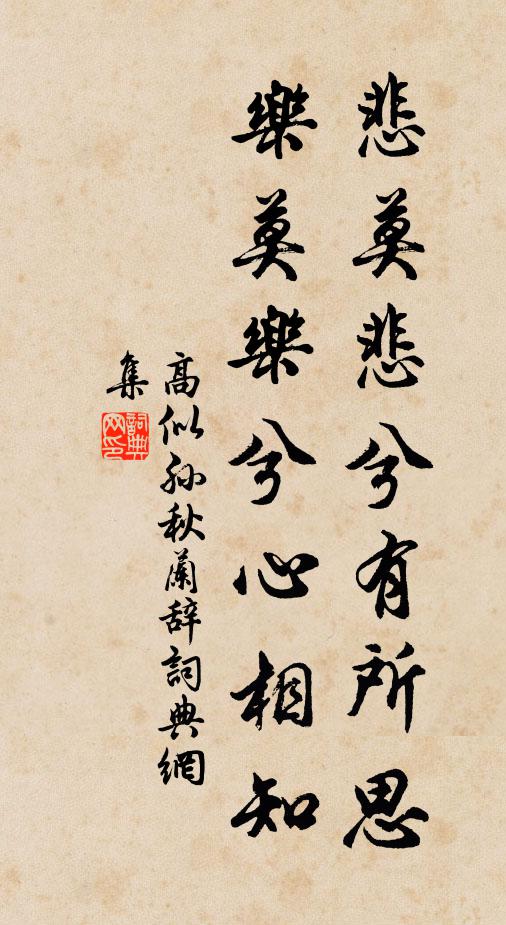 悲莫悲兮有所思
樂莫樂兮心相知
高似孫秋蘭辭詞典網
集
詞典網印